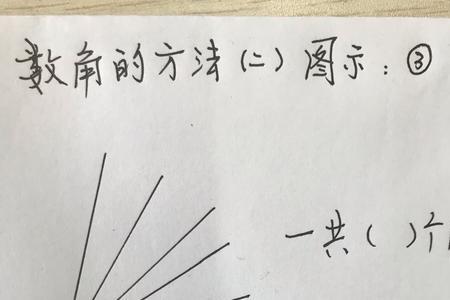 数角的方法(二)图示:③
一共( )个